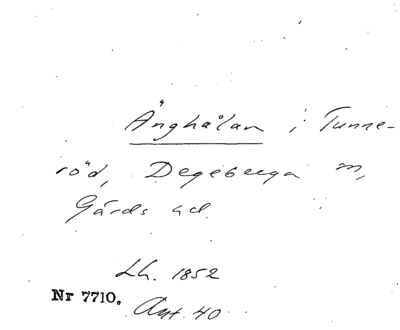 Änghålan i Tunne-
röd, Degeberga m,
Gärds hd.
Lh. 1852
Nr 7710. Ant. 40.